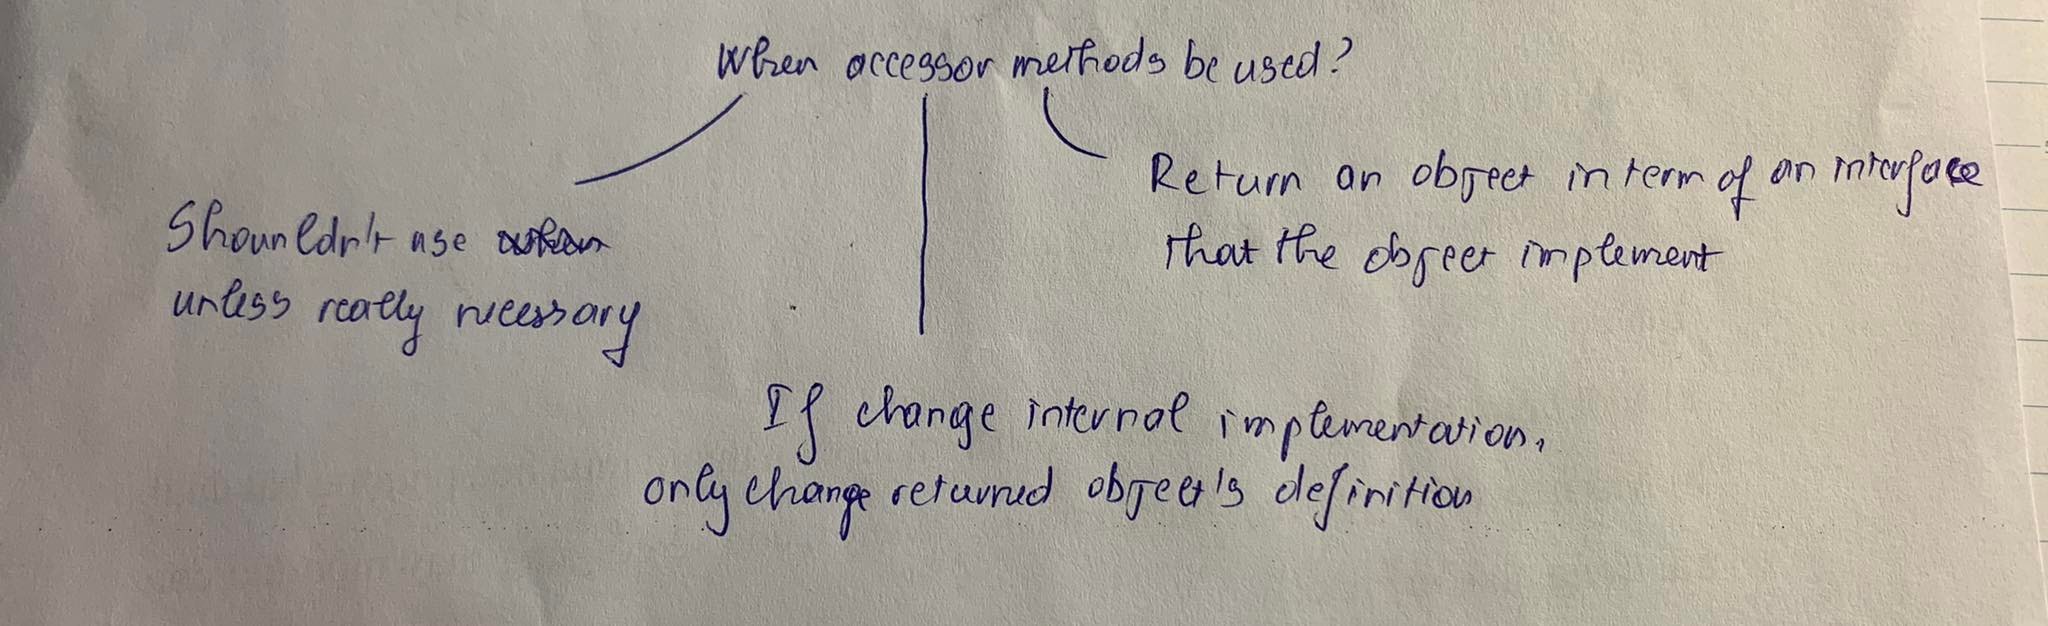 When accessor methods be used?
Shounldn't use
unless really necessary
Return an object in term of an interface
that the object implement
If change internal implementation,
only change returned object's definition